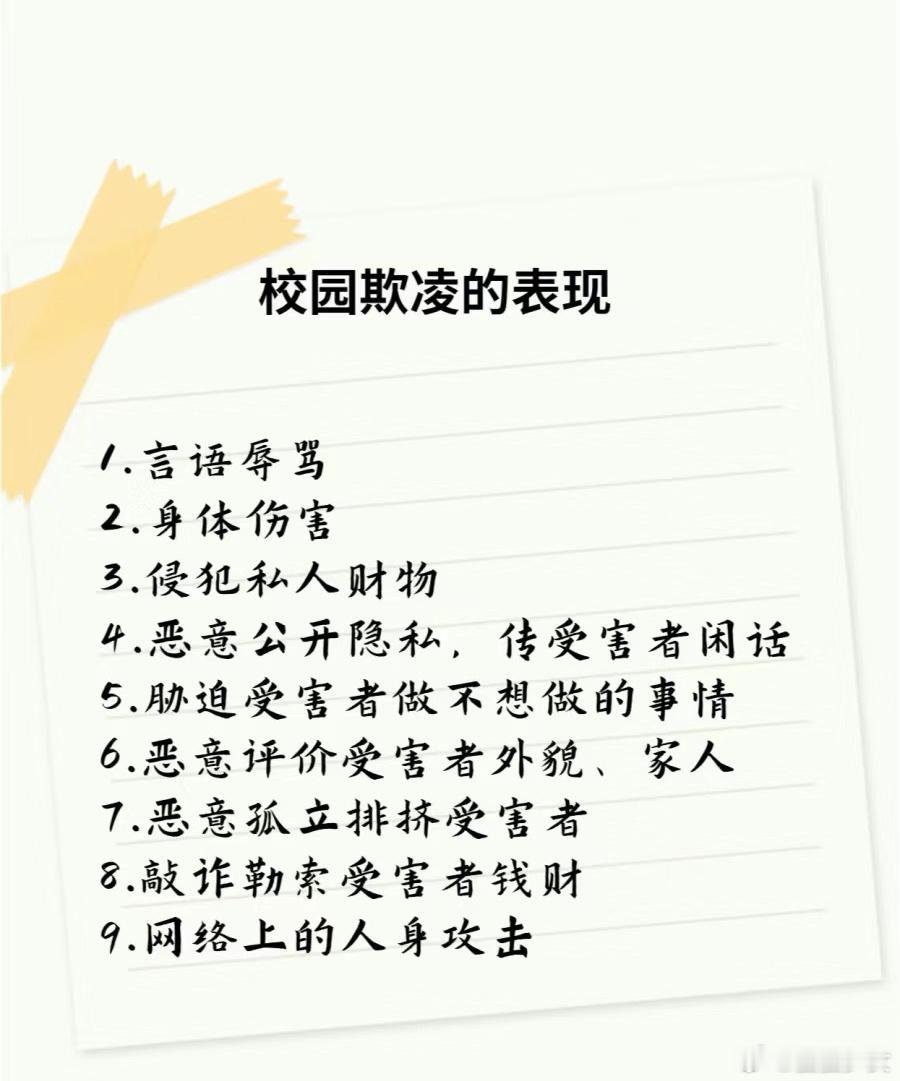 校园欺凌的表现
1.言语辱骂
2.身体伤害
3.侵犯私人财物
4.恶意公开隐私，传受害者闲话
5.胁迫受害者做不想做的事情
6.恶意评价受害者外貌、家人
7.恶意孤立排挤受害者
8.敲诈勒索受害者钱财
9.网络上的人身攻击